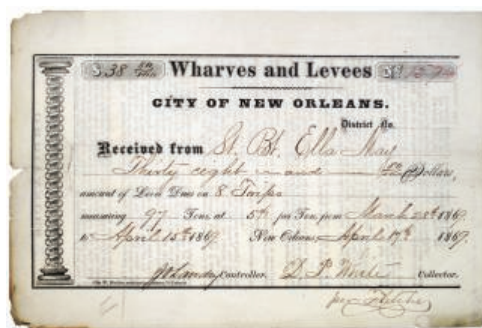 $ 38 80/100 Wharves and Levees No.
CITY OF NEW ORLEANS.
District No.
Received from St. Bt. Ella May
Thirty eight and Dollars,
amount of Levee Dues on 8 Trips
measuring 97 Tons, at 5cts per Ton, from March 28th 1869
to April 15th 1869 New Orleans, April 17th 1869.
Controller. D. P. White Collector.
per